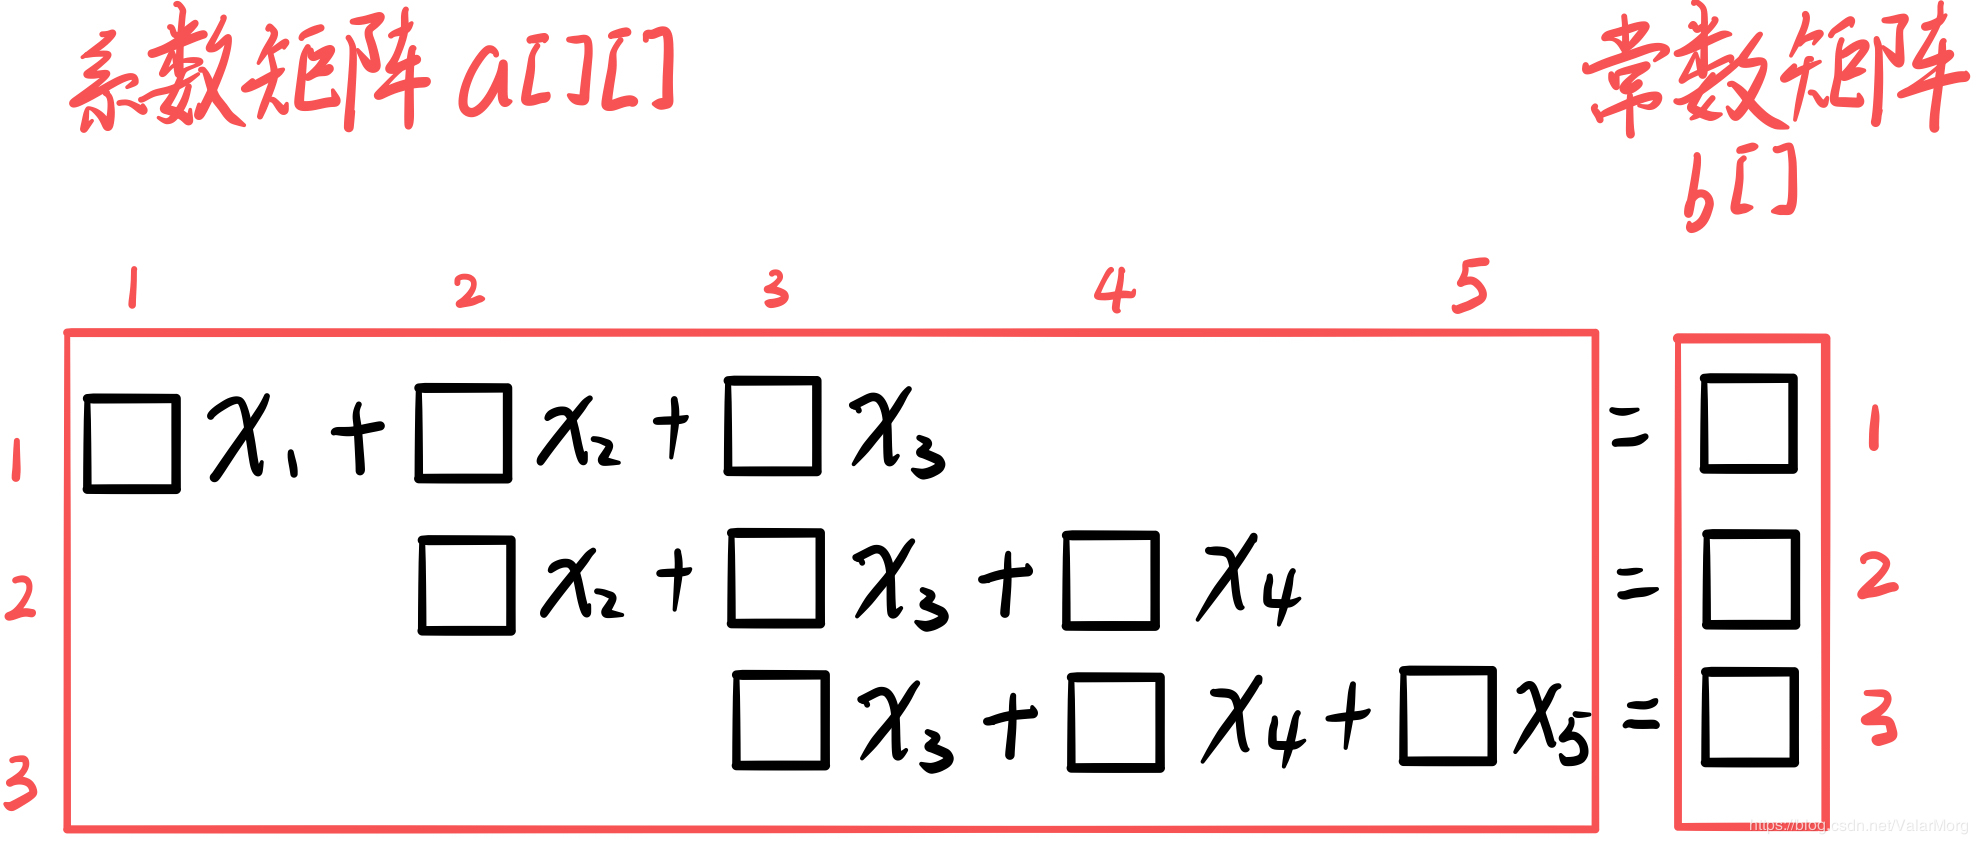 系数矩阵 a[][] 常数矩阵
b[]
1 2 3 4 5
1 □x₁ + □x₂ + □x₃ = □ 1
2 □x₂ + □x₃ + □x₄ = □ 2
3 □x₃ + □x₄ + □x₅ = □ 3
https://blog.csdn.net/ValarMorg